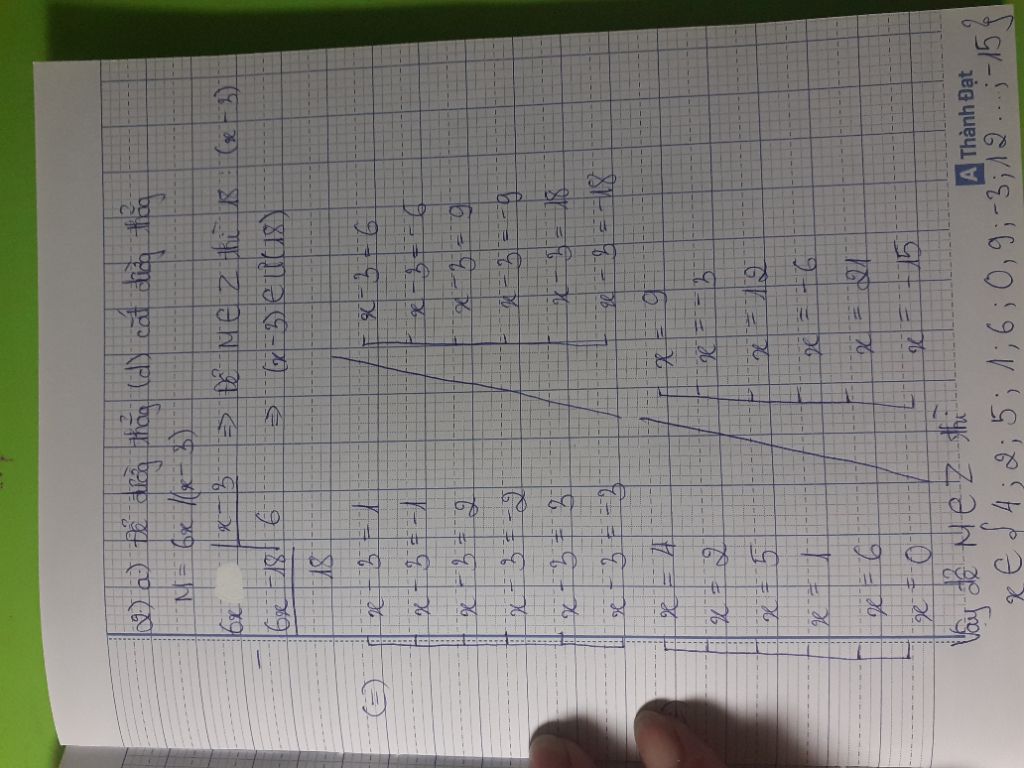 2) a) Để đường thẳng (d) cắt đường thẳng
M = 6x / (x - 3)
6x | x - 3 => Để M ∈ Z thì 18 ⋮ (x - 3)
- 6x - 18 | 6 => (x - 3) ∈ Ư(18)
18
(=) x - 3 = 1 x - 3 = 6
x - 3 = -1 x - 3 = -6
x - 3 = 2 x - 3 = 9
x - 3 = -2 x - 3 = -9
x - 3 = 3 x - 3 = 18
x - 3 = -3 x - 3 = -18
x = 4 x = 9
x = 2 x = -3
x = 5 x = 12
x = 1 x = -6
x = 6 x = 21
x = 0 x = -15
Vậy để M ∈ Z thì
x ∈ { 4 ; 2 ; 5 ; 1 ; 6 ; 0 ; 9 ; -3 ; 12 ... ; -15 }
A Thành Đạt